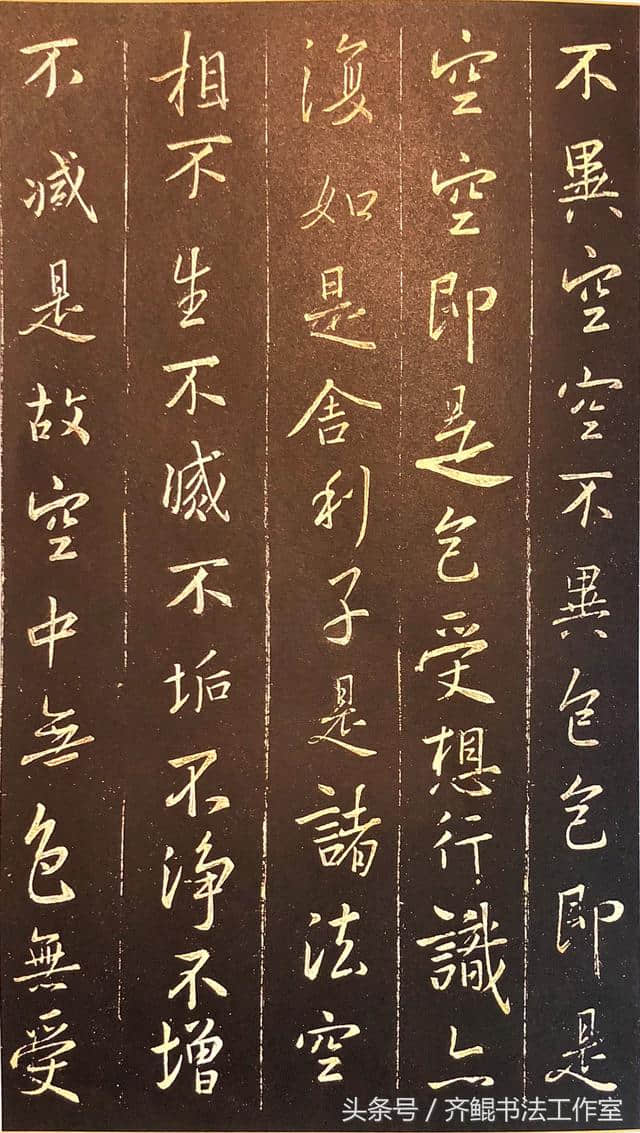 不異空空不異色色即是
空空即是色受想行識亦
復如是舍利子是諸法空
相不生不滅不垢不淨不增
不減是故空中無色無受
头条号／齐鲲书法工作室